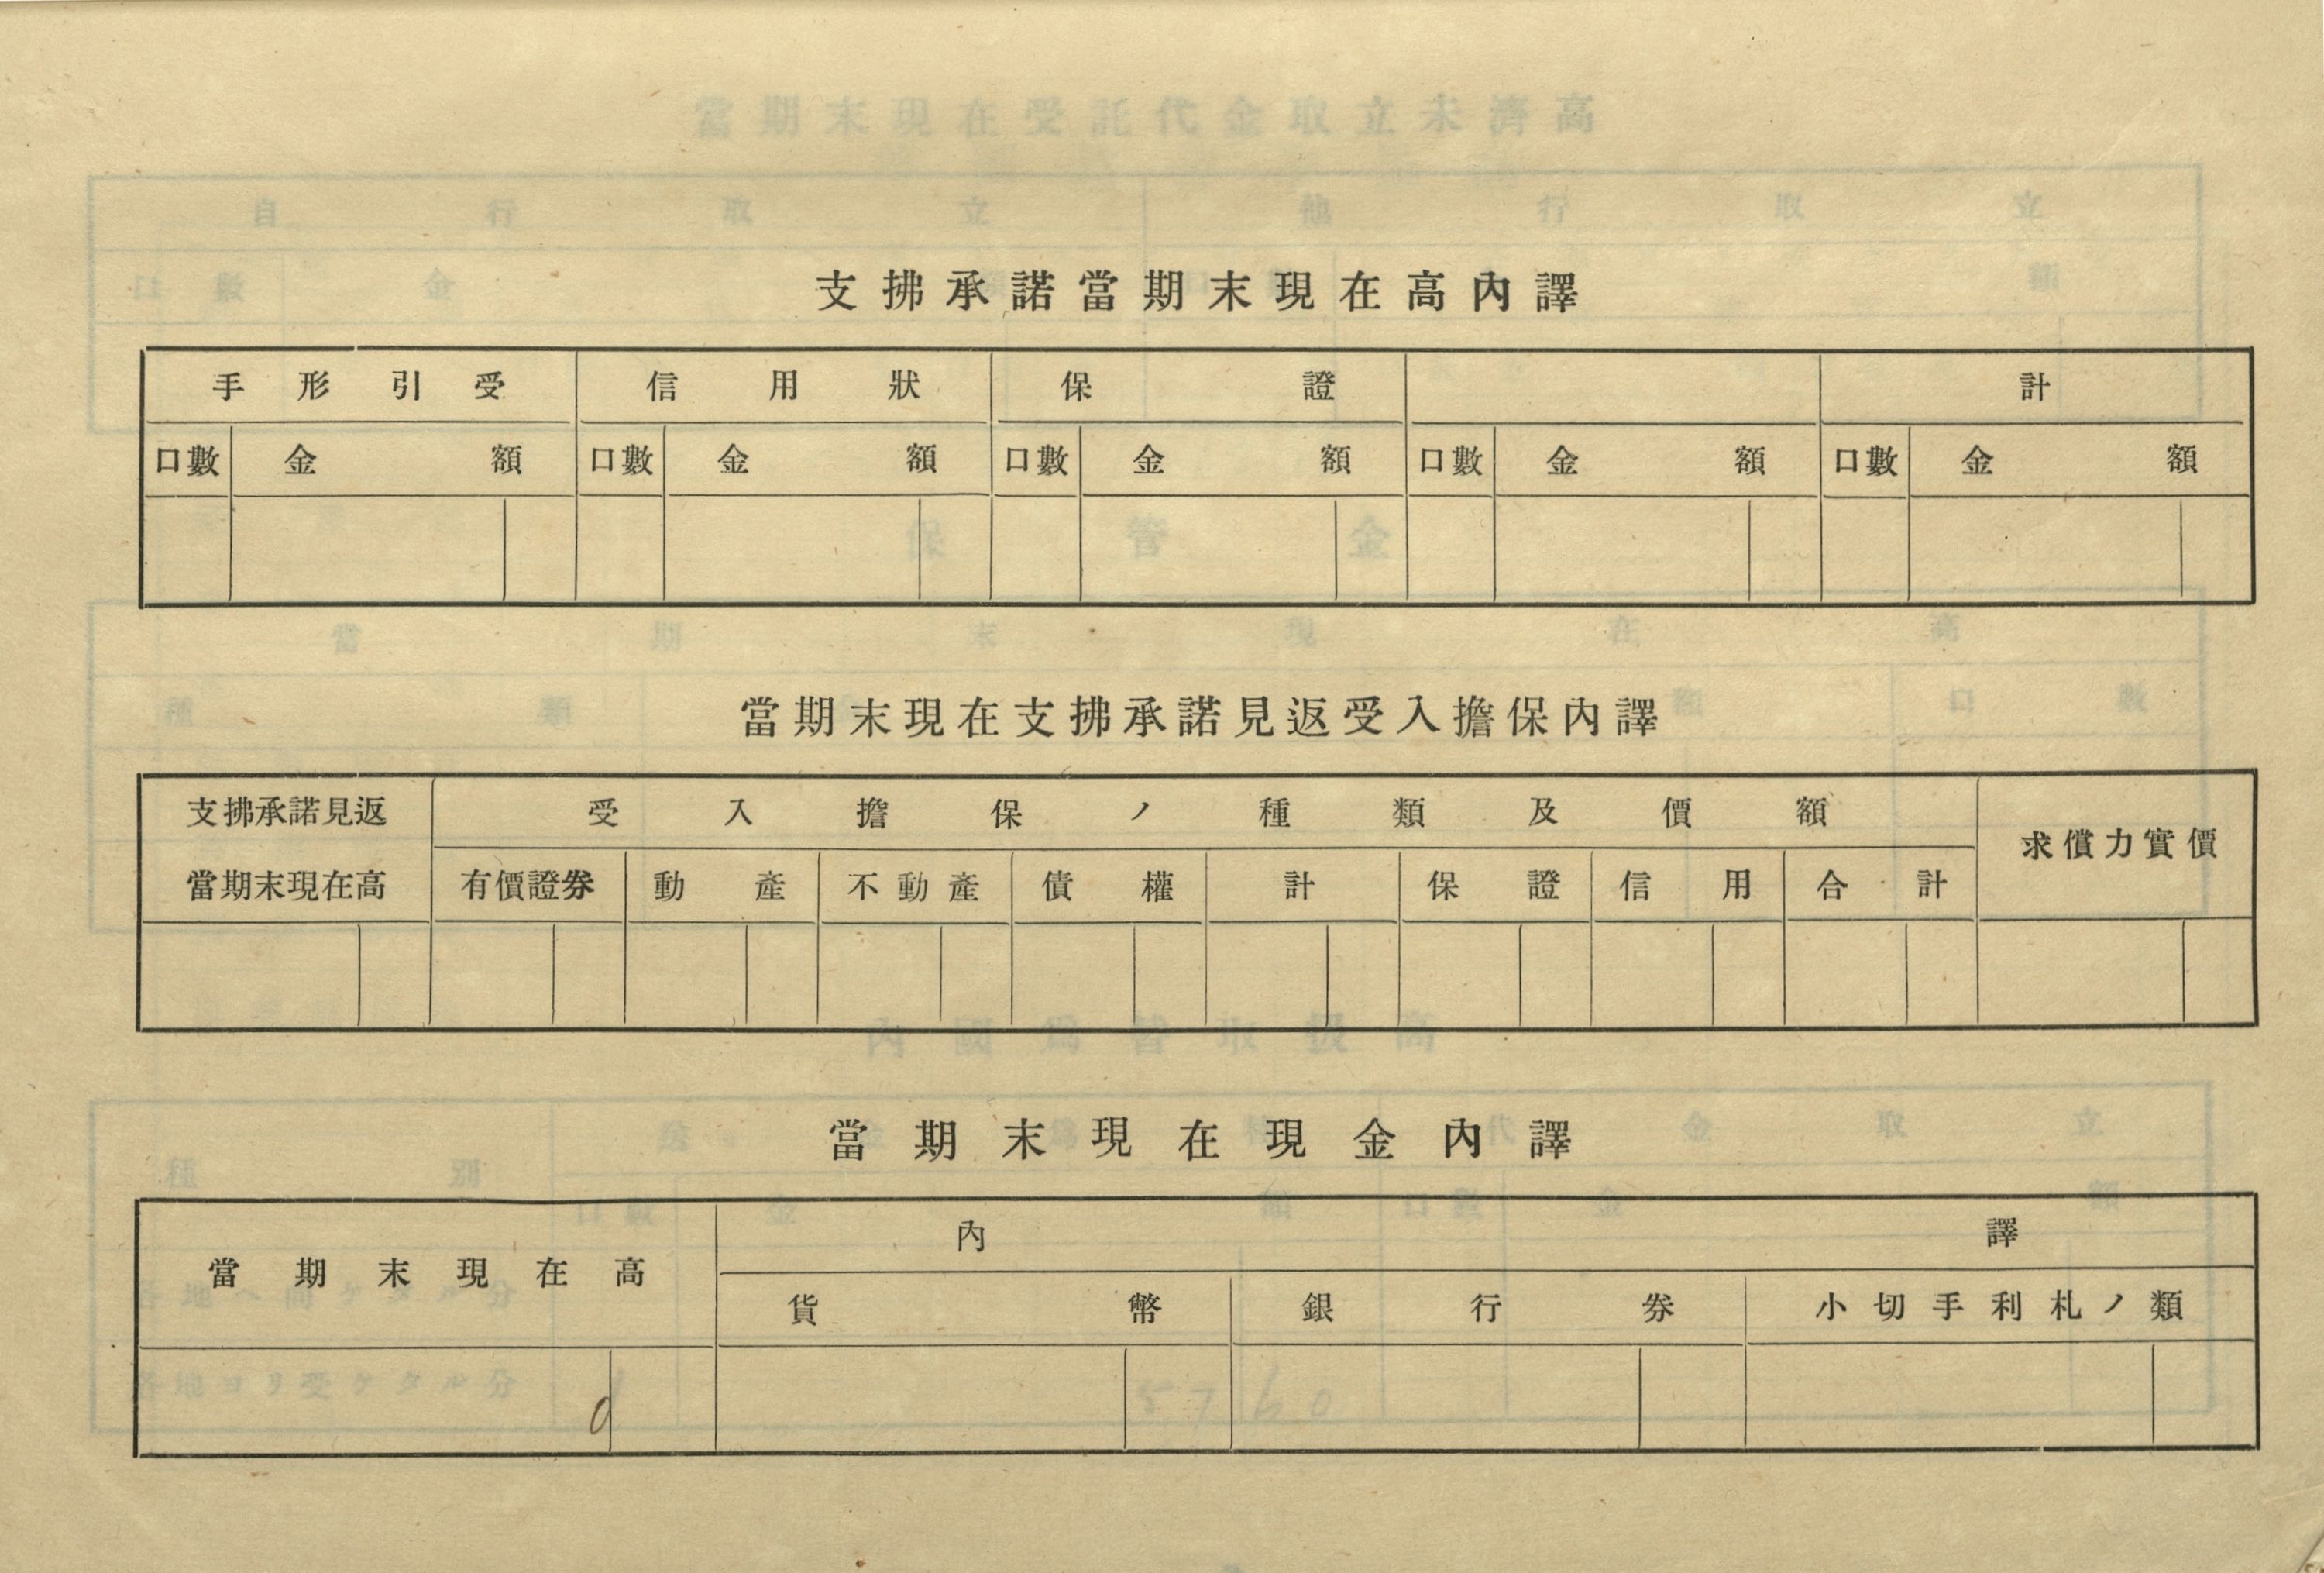 支拂承諾當期末現在高內譯
手形引受 信用狀 保證 計
口數 金額 口數 金額 口數 金額 口數 金額 口數 金額
當期末現在支拂承諾見返受入擔保內譯
支拂承諾見返 受入擔保ノ種類及價額 求償力實價
當期末現在高 有價證券 動產 不動產 債權 計 保證 信用 合計
當期末現在現金內譯
當期末現在高 內譯
貨幣 銀行券 小切手利札ノ類
0